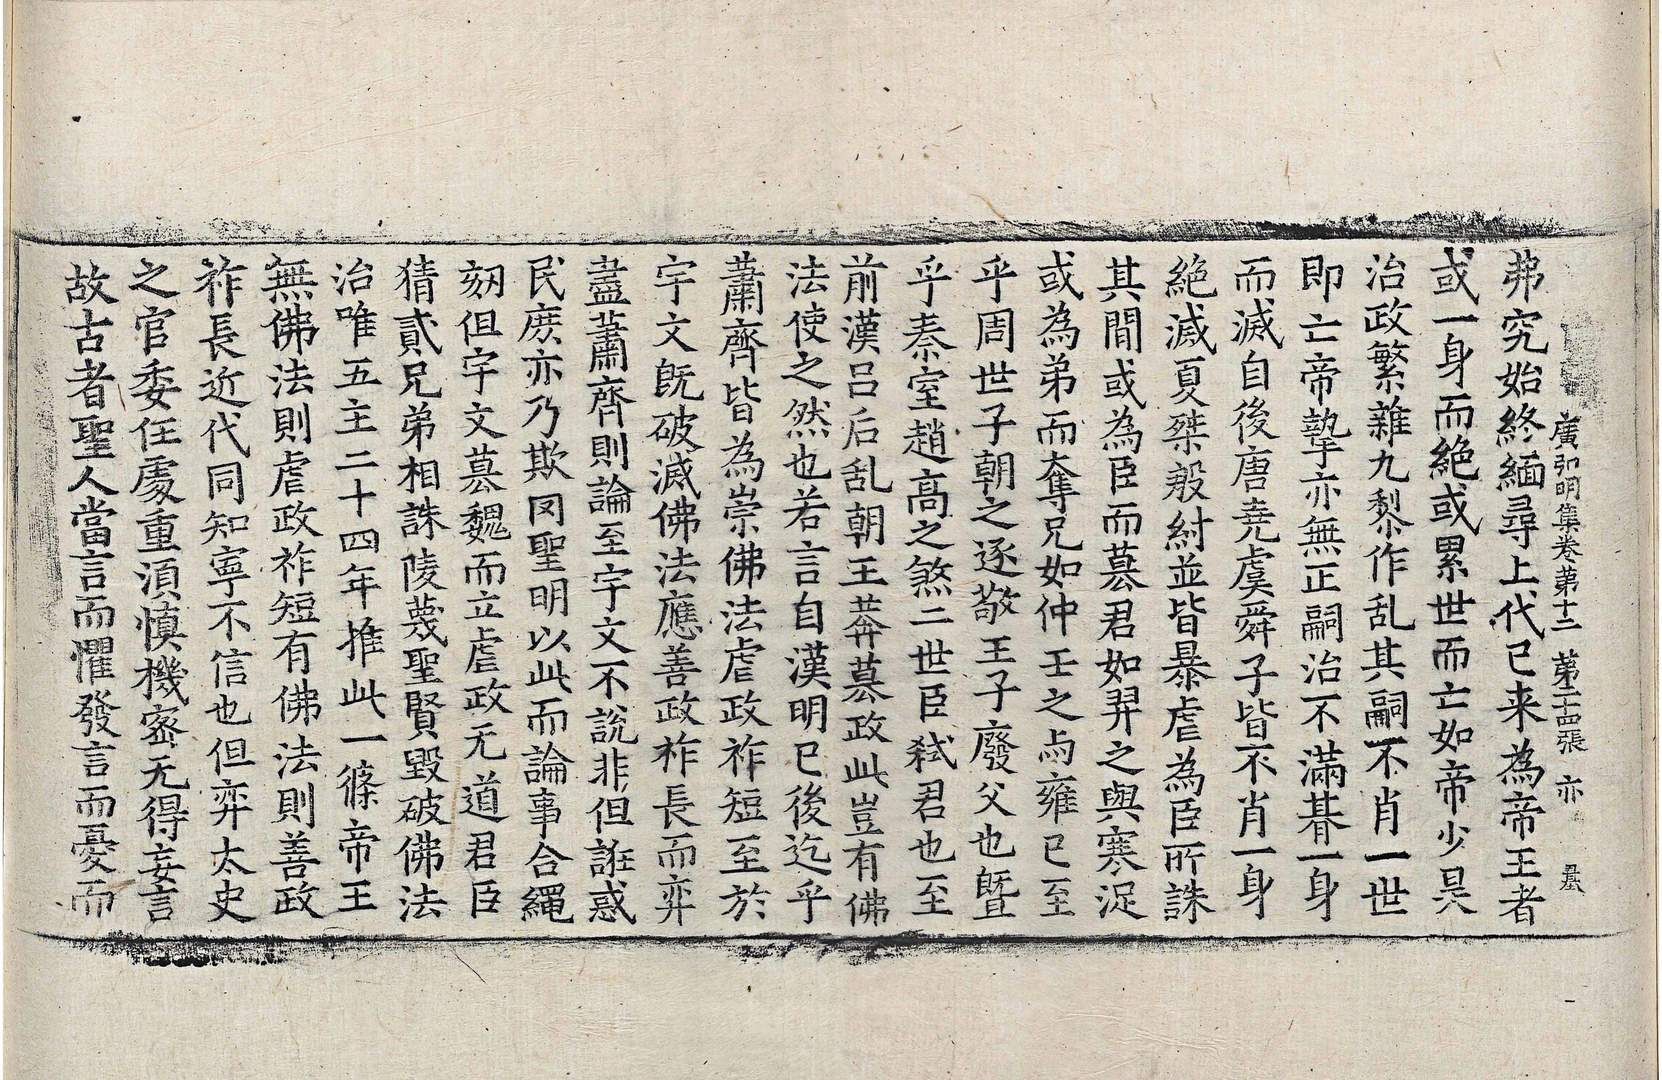 廣弘明集卷第十二 第二十四張 亦
弗究始終緬尋上代已来為帝王者
或一身而絕或累世而亡如帝少昊
治政繁雜九黎作乱其嗣不肖一世
即亡帝摯亦無正嗣治不滿朞一身
而滅自後唐堯虞舜子皆不肖一身
絕滅夏桀殷紂並皆暴虐為臣所誅
其間或為臣而篡君如羿之與寒浞
或為弟而奪兄如仲壬之与雍已至
乎周世子朝之逐敬王子廢父也曁
乎秦室趙高之煞二世臣弒君也至
前漢吕后乱朝王莽篡政此豈有佛
法使之然也若言自漢明已後迄乎
蕭齊皆為崇佛法虐政祚短至於
宇文既破滅佛法應善政祚長而弈
蓋蕭齊則論至宇文不說非但誑惑
民庶亦乃欺罔聖明以此而論事合繩
劾但宇文篡魏而立虐政无道君臣
猜貳兄弟相誅陵蔑聖賢毀破佛法
治唯五主二十四年推此一條帝王
無佛法則虐政祚短有佛法則善政
祚長近代同知寧不信也但弈太史
之官委任處重湏慎機密无得妄言
故古者聖人當言而懼發言而憂而